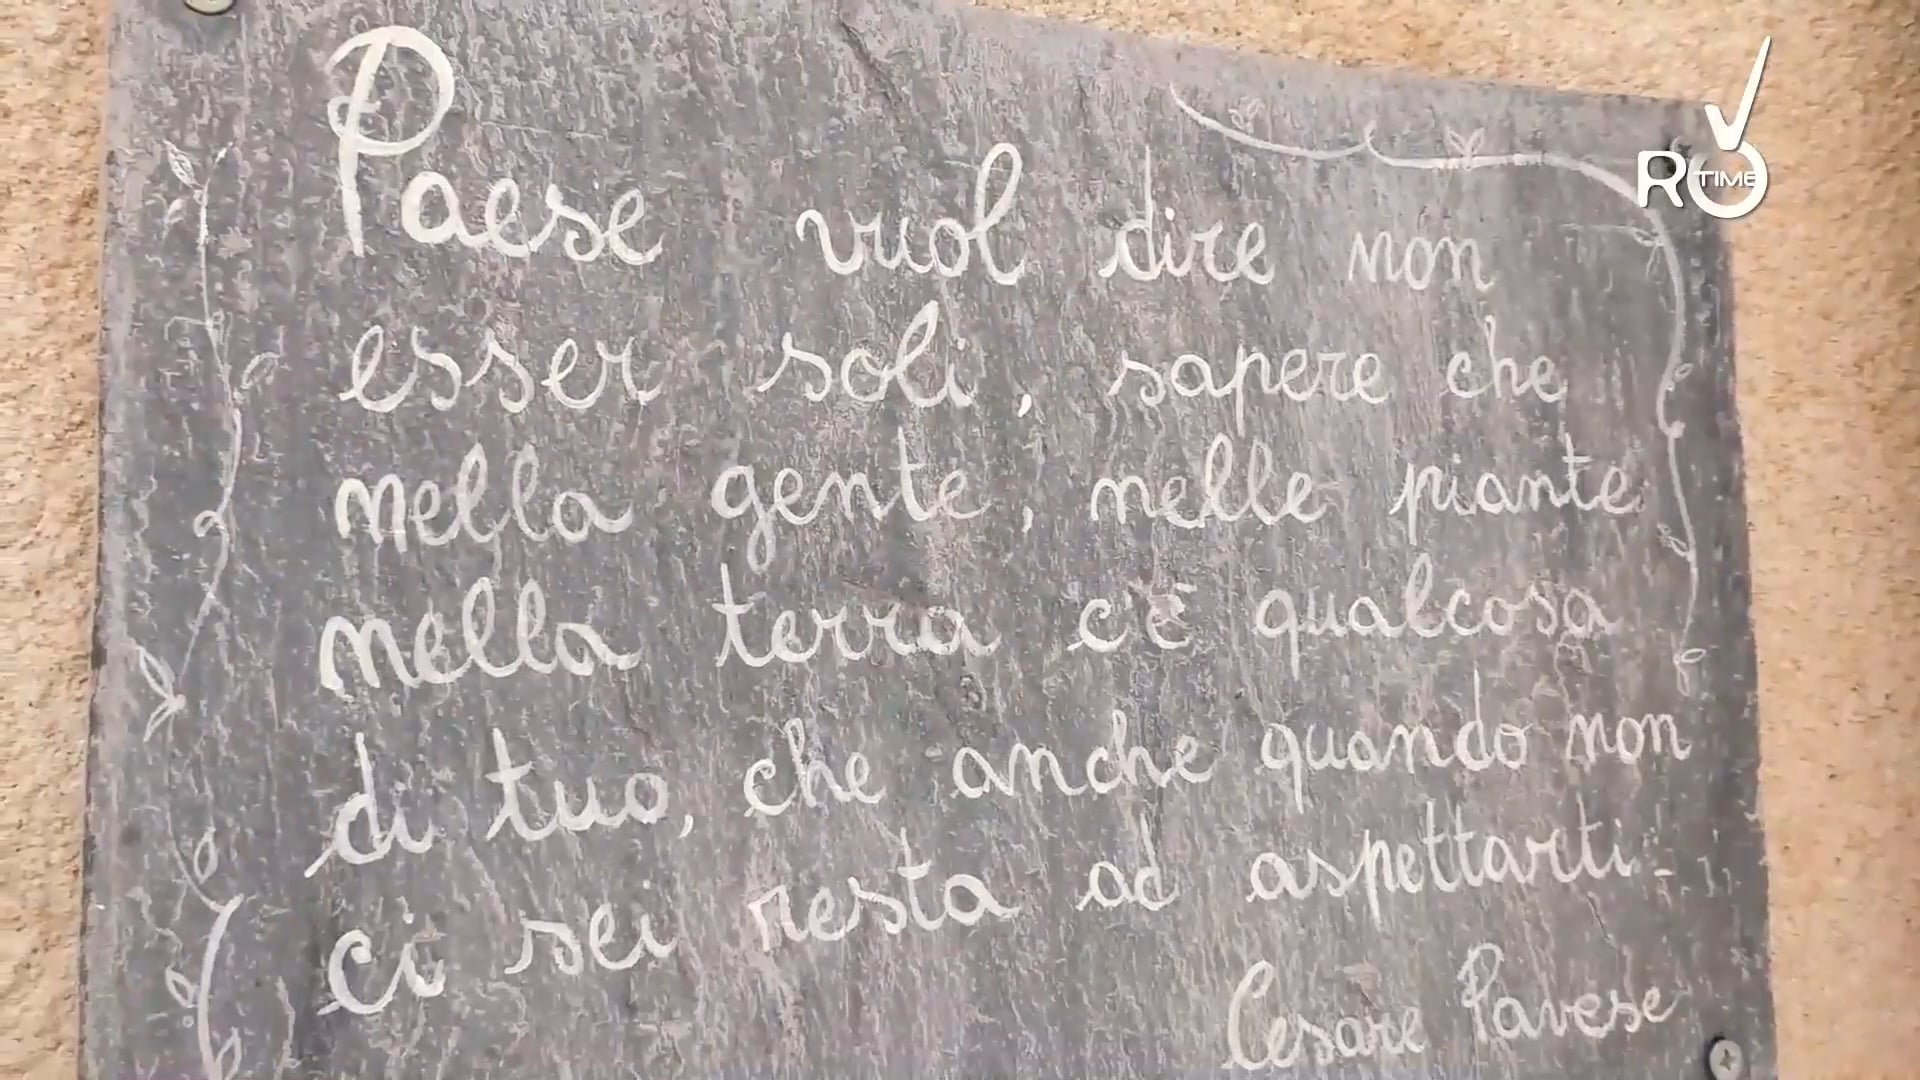 Paese vuol dire non
esser soli, sapere che
nella gente, nelle piante
nella terra c'è qualcosa
di tuo, che anche quando non
ci sei resta ad aspettarti.
Cesare Pavese
RO TIME